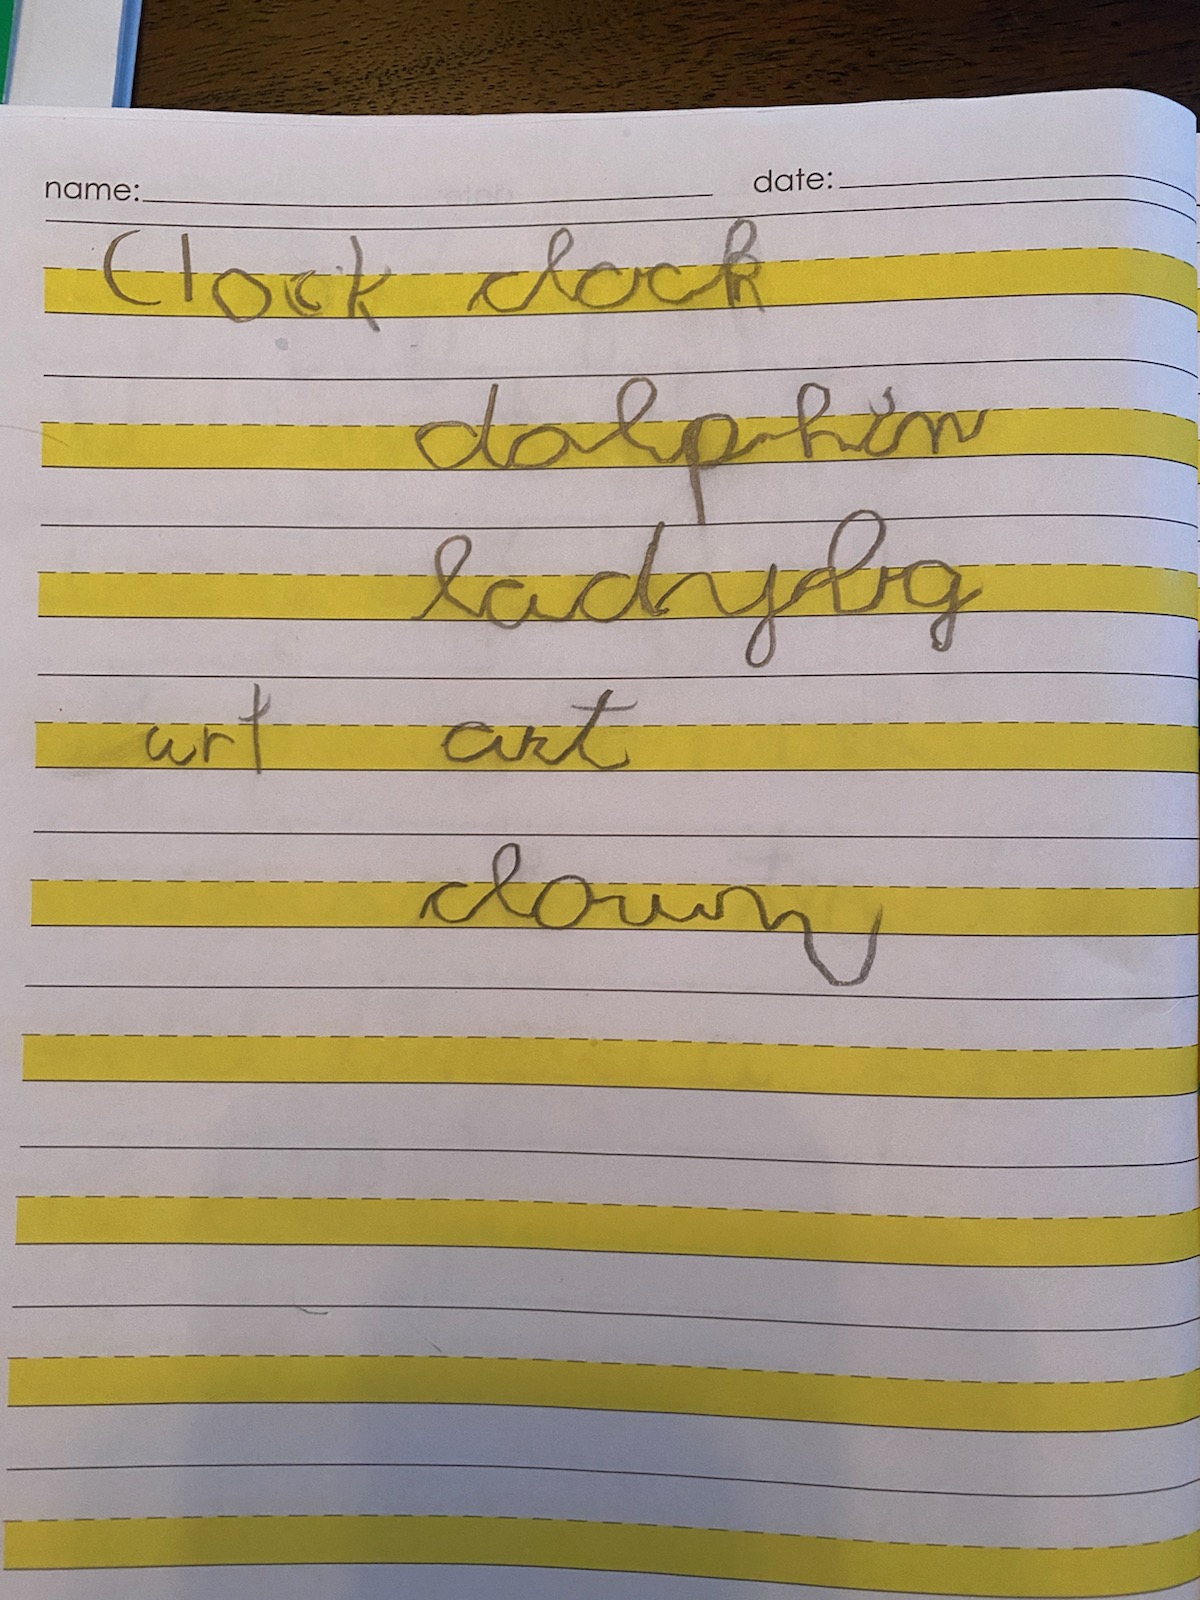 name: date:
Clock clock
dolphin
ladybug
art art
clown